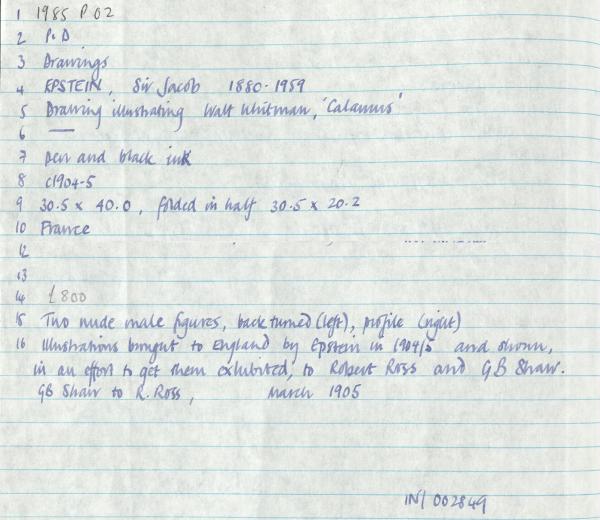 1 1985 P 02
2 P.D
3 Drawings
4 EPSTEIN, Sir Jacob 1880-1959
5 Drawing illustrating Walt Whitman, 'Calamus'
6 —
7 Pen and black ink
8 c1904-5
9 30.5 x 40.0, folded in half 30.5 x 20.2
10 France
12
13
14 £800
15 Two nude male figures, back turned (left), profile (right)
16 Illustrations brought to England by Epstein in 1904/5 and shown,
in an effort to get them exhibited, to Robert Ross and GB Shaw.
GB Shaw to R. Ross, March 1905
IN/002849